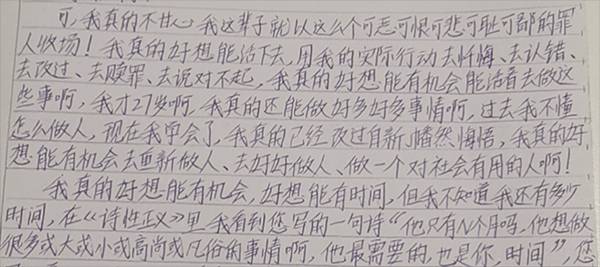 可，我真的不甘心我这辈子就以这么个可恶可恨可悲可耻可鄙的罪
人收场！我真的好想能活下去，用我的实际行动去忏悔、去认错、
去改过、去赎罪、去说对不起，我真的好想能有机会能活着去做这
些事啊，我才27岁啊，我真的还能做好多好多事情啊，过去我不懂
怎么做人，现在我学会了，我真的已经改过自新幡然悔悟，我真的好
想能有机会去重新做人、去好好做人、做一个对社会有用的人啊！
我真的好想能有机会，好想能有时间，但我不知道我还有多少
时间，在《诗性正义》里我看到您写的一句诗“他只有N个月吗，他想做
很多或大或小或高尚或凡俗的事情啊，他最需要的，也是你，时间”，您